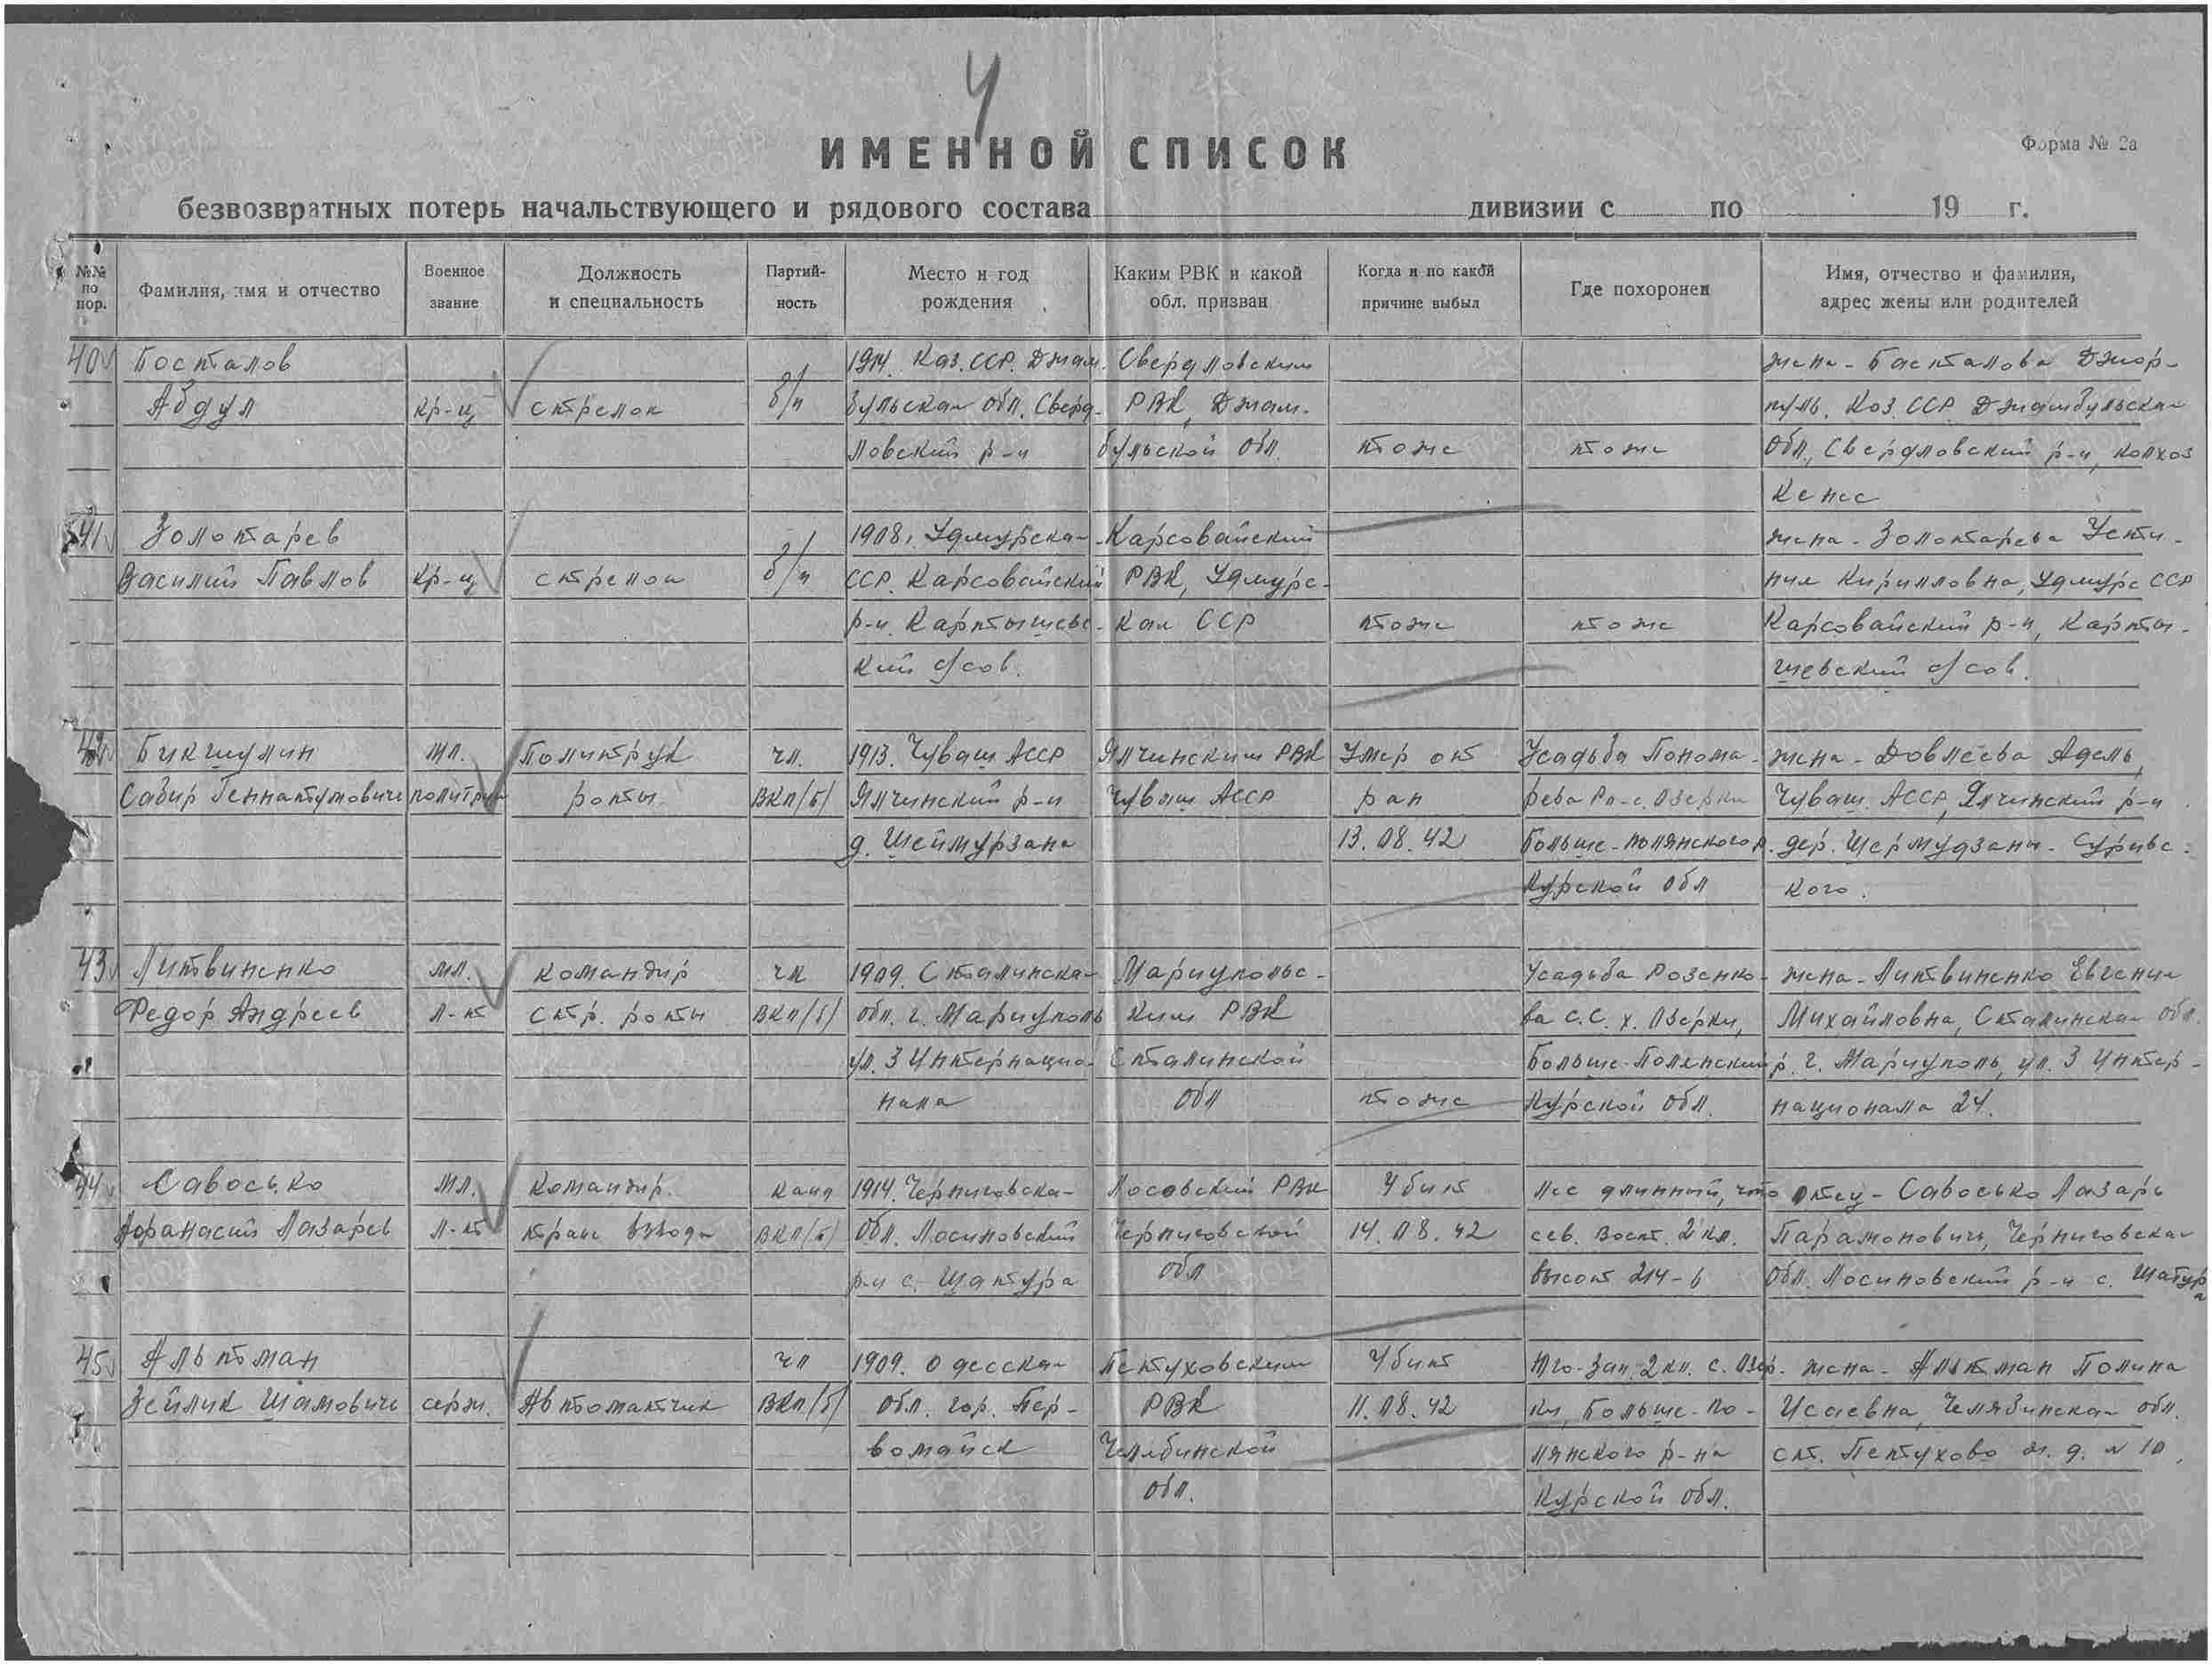 4
ИМЕННОЙ СПИСОК
Форма № 2а
безвозвратных потерь начальствующего и рядового состава дивизии с по 19 г.
№№ по пор.
Фамилия, имя и отчество
Военное звание
Должность и специальность
Партийность
Место и год рождения
Каким РВК и какой обл. призван
Когда и по какой причине выбыл
Где похоронен
Имя, отчество и фамилия, адрес жены или родителей
40 Посталов 1914. Каз. ССР. Джам- Свердловским жена - Басталова Джор-
Абдул кр-ц стрелок б/п бульская обл. Сверд- РВК, Джам- Каз. ССР Джамбульская
ловский р-н бульской обл. тоже тоже обл., Свердловский р-н, колхоз
Кенес
41 Золотарев 1908, Удмурская Карсовайский жена - Золотарева Усти-
Василий Павлов кр-ц стрелок б/п ССР. Карсовайский РВК, Удмурс- ния Кирилловна, Удмурс ССР
р-н. Картышевс- кая ССР тоже тоже Карсовайский р-н, Карты-
кий с/сов. шевский с/сов.
42 Бикшулин мл. Политрук чл. 1913. Чуваш АССР Ялчинским РВК Умер от Усадьба Понома- жена - Довлеева Адель,
Сабир Геннатулович политрук роты ВКП/б/ Ялчинский р-н Чуваш АССР ран рева с. Озерки Чуваш. АССР, Ялчинский р-н
д. Шеймурзана 13.08.42 Больше-полянского р. дер.
Курской обл кого.
43 Литвиненко мл. командир чл 1909. Сталинская Мариупольс- Усадьба Розенко- жена - Литвиненко Евгения
Федор Андреев л-т стр. роты ВКП/б/ обл. г. Мариуполь ким РВК ва с.с. х. Озерки, Михайловна, Сталинская обл.
ул. 3 Интернацио- Сталинской Больше-Полянский р. г. Мариуполь, ул. 3 Интер-
нала обл тоже Курской обл. национала 24.
44 Савосько мл. командир. канд 1914. Черниговская Лосовский РВК Убит Лес длинный, что отец - Савосько Лазарь
Афанасий Лазарев л-т взвода ВКП/б/ обл. Лосиновский Черниговской 14.08.42 сев. вост. 2 кл. Парамонович, Черниговская
р-н с. Шатура обл высот 214-6 обл. Лосиновский р-н с. Шатура
45 Альтман чл 1909. Одесская Петуховским Убит Юго-Зап. 2 кл. с. Озер- жена - Альтман Полина
Зейлик Шамович серж. Автоматчик ВКП/б/ обл. гор. Пер- РВК 11.08.42 ки, Больше-По- Исаевна, Челябинская обл.
вомайск Челябинской лянского р-на ст. Петухово ж. д. № 10.
обл. Курской обл.
ПАМЯТЬ НАРОДА